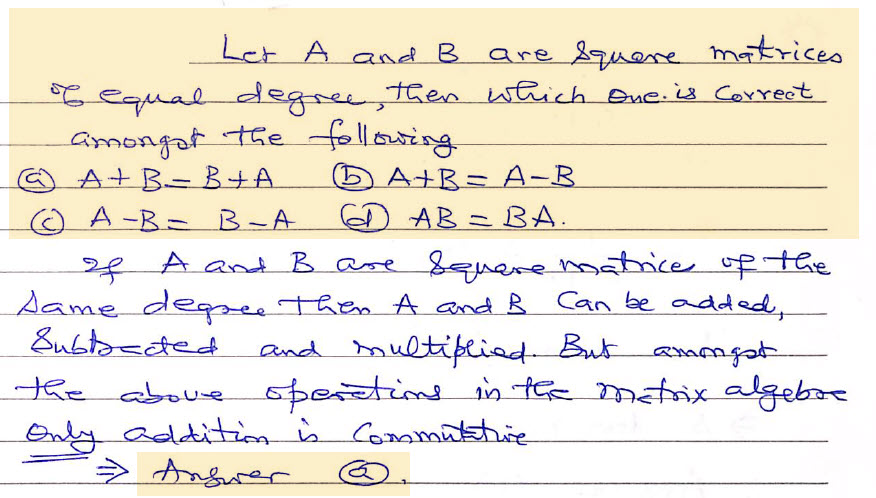 Let A and B are Square matrices
of equal degree, then which one is Correct
amongst the following
(a) A + B = B + A (b) A + B = A - B
(c) A - B = B - A (d) AB = BA.
If A and B are Square matrices of the
Same degree then A and B Can be added,
Subtracted and multiplied. But amongst
the above operations in the matrix algebra
Only addition is Commutative
⇒ Answer (a).